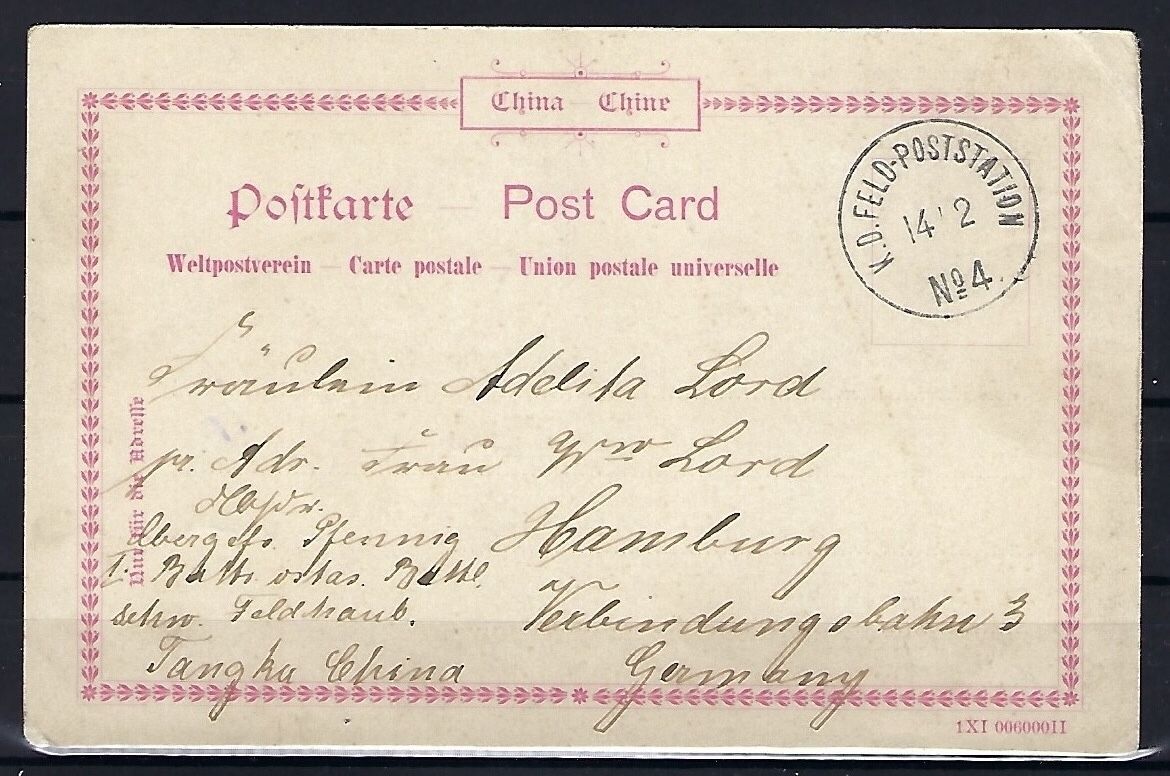 China — Chine
Postkarte — Post Card
Weltpostverein — Carte postale — Union postale universelle
K.D. FELD-POSTSTATION
14 2
No 4.
Nur für die Adresse
Fräulein Adelita Lord
pr. Adr. Frau Ww Lord
Hamburg
Verbindungsbahn 3
Germany
Absdr.
Obergefr. Pfennig
1. Battr. ostas. Battl.
schw. Feldhaub.
Tangku China
1XI 006000II